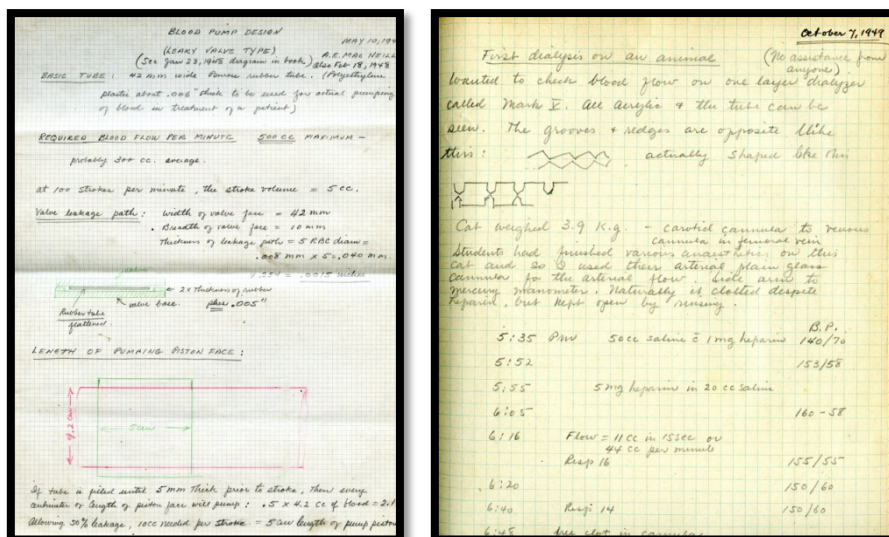 BLOOD PUMP DESIGN
MAY 10, 194
(LEAKY VALVE TYPE)
A.E. MAC NEILL
(See Jan 23, 1948 diagram in book)
also Feb 18, 1948
BASIC TUBE: 42 mm wide Penrose rubber tube. (Polyethylene
plastic about .006" thick to be used for actual pumping
of blood in treatment of a patient)
REQUIRED BLOOD FLOW PER MINUTE 500 CC MAXIMUM -
probably 300 cc. average.
at 100 strokes per minute, the stroke volume = 5 cc.
Valve leakage path: width of valve face = 42 mm
Breadth of valve face = 10 mm
Thickness of leakage path = 5 RBC diam =
.008 mm x 5 = .040 mm
= .0015 inches
2 x thickness of rubber
valve base. plus .005"
Rubber tube
flattened
LENGTH OF PUMPING PISTON FACE:
4.2 cm
5 cm
If tube is filled until 5 mm thick prior to stroke, then every
centimeter of length of piston face will pump: .5 x 4.2 cc of blood = 2.1
Allowing 50% leakage, 10cc needed per stroke = 5 cm length of pump piston
October 7, 1949
First dialysis on an animal (No assistance from
anyone)
Wanted to check blood flow on one layer dialyzer
called Mark V. All acrylic & the tube can be
seen. The grooves & redges are opposite like
this: actually shaped like this
Cat weighed 3.9 K.g. - carotid cannula to venous
cannula in femoral vein
Students had finished various anaesthetics on this
cat and so I used their arterial plain glass
cannula for the arterial flow. Side arm to
mercury manometer. Naturally it clotted despite
heparin, but kept open by rinsing.
B.P.
5:35 PM 50cc saline c̄ 1 mg heparin 140/70
5:52 153/58
5:55 5 mg heparin in 20 cc saline
6:05 160-58
6:16 Flow = 11 cc in 15 sec or
44 cc per minute
Resp 16 155/55
6:20 150/60
6:40 Resp 14 150/60
6:45 clot in cannula